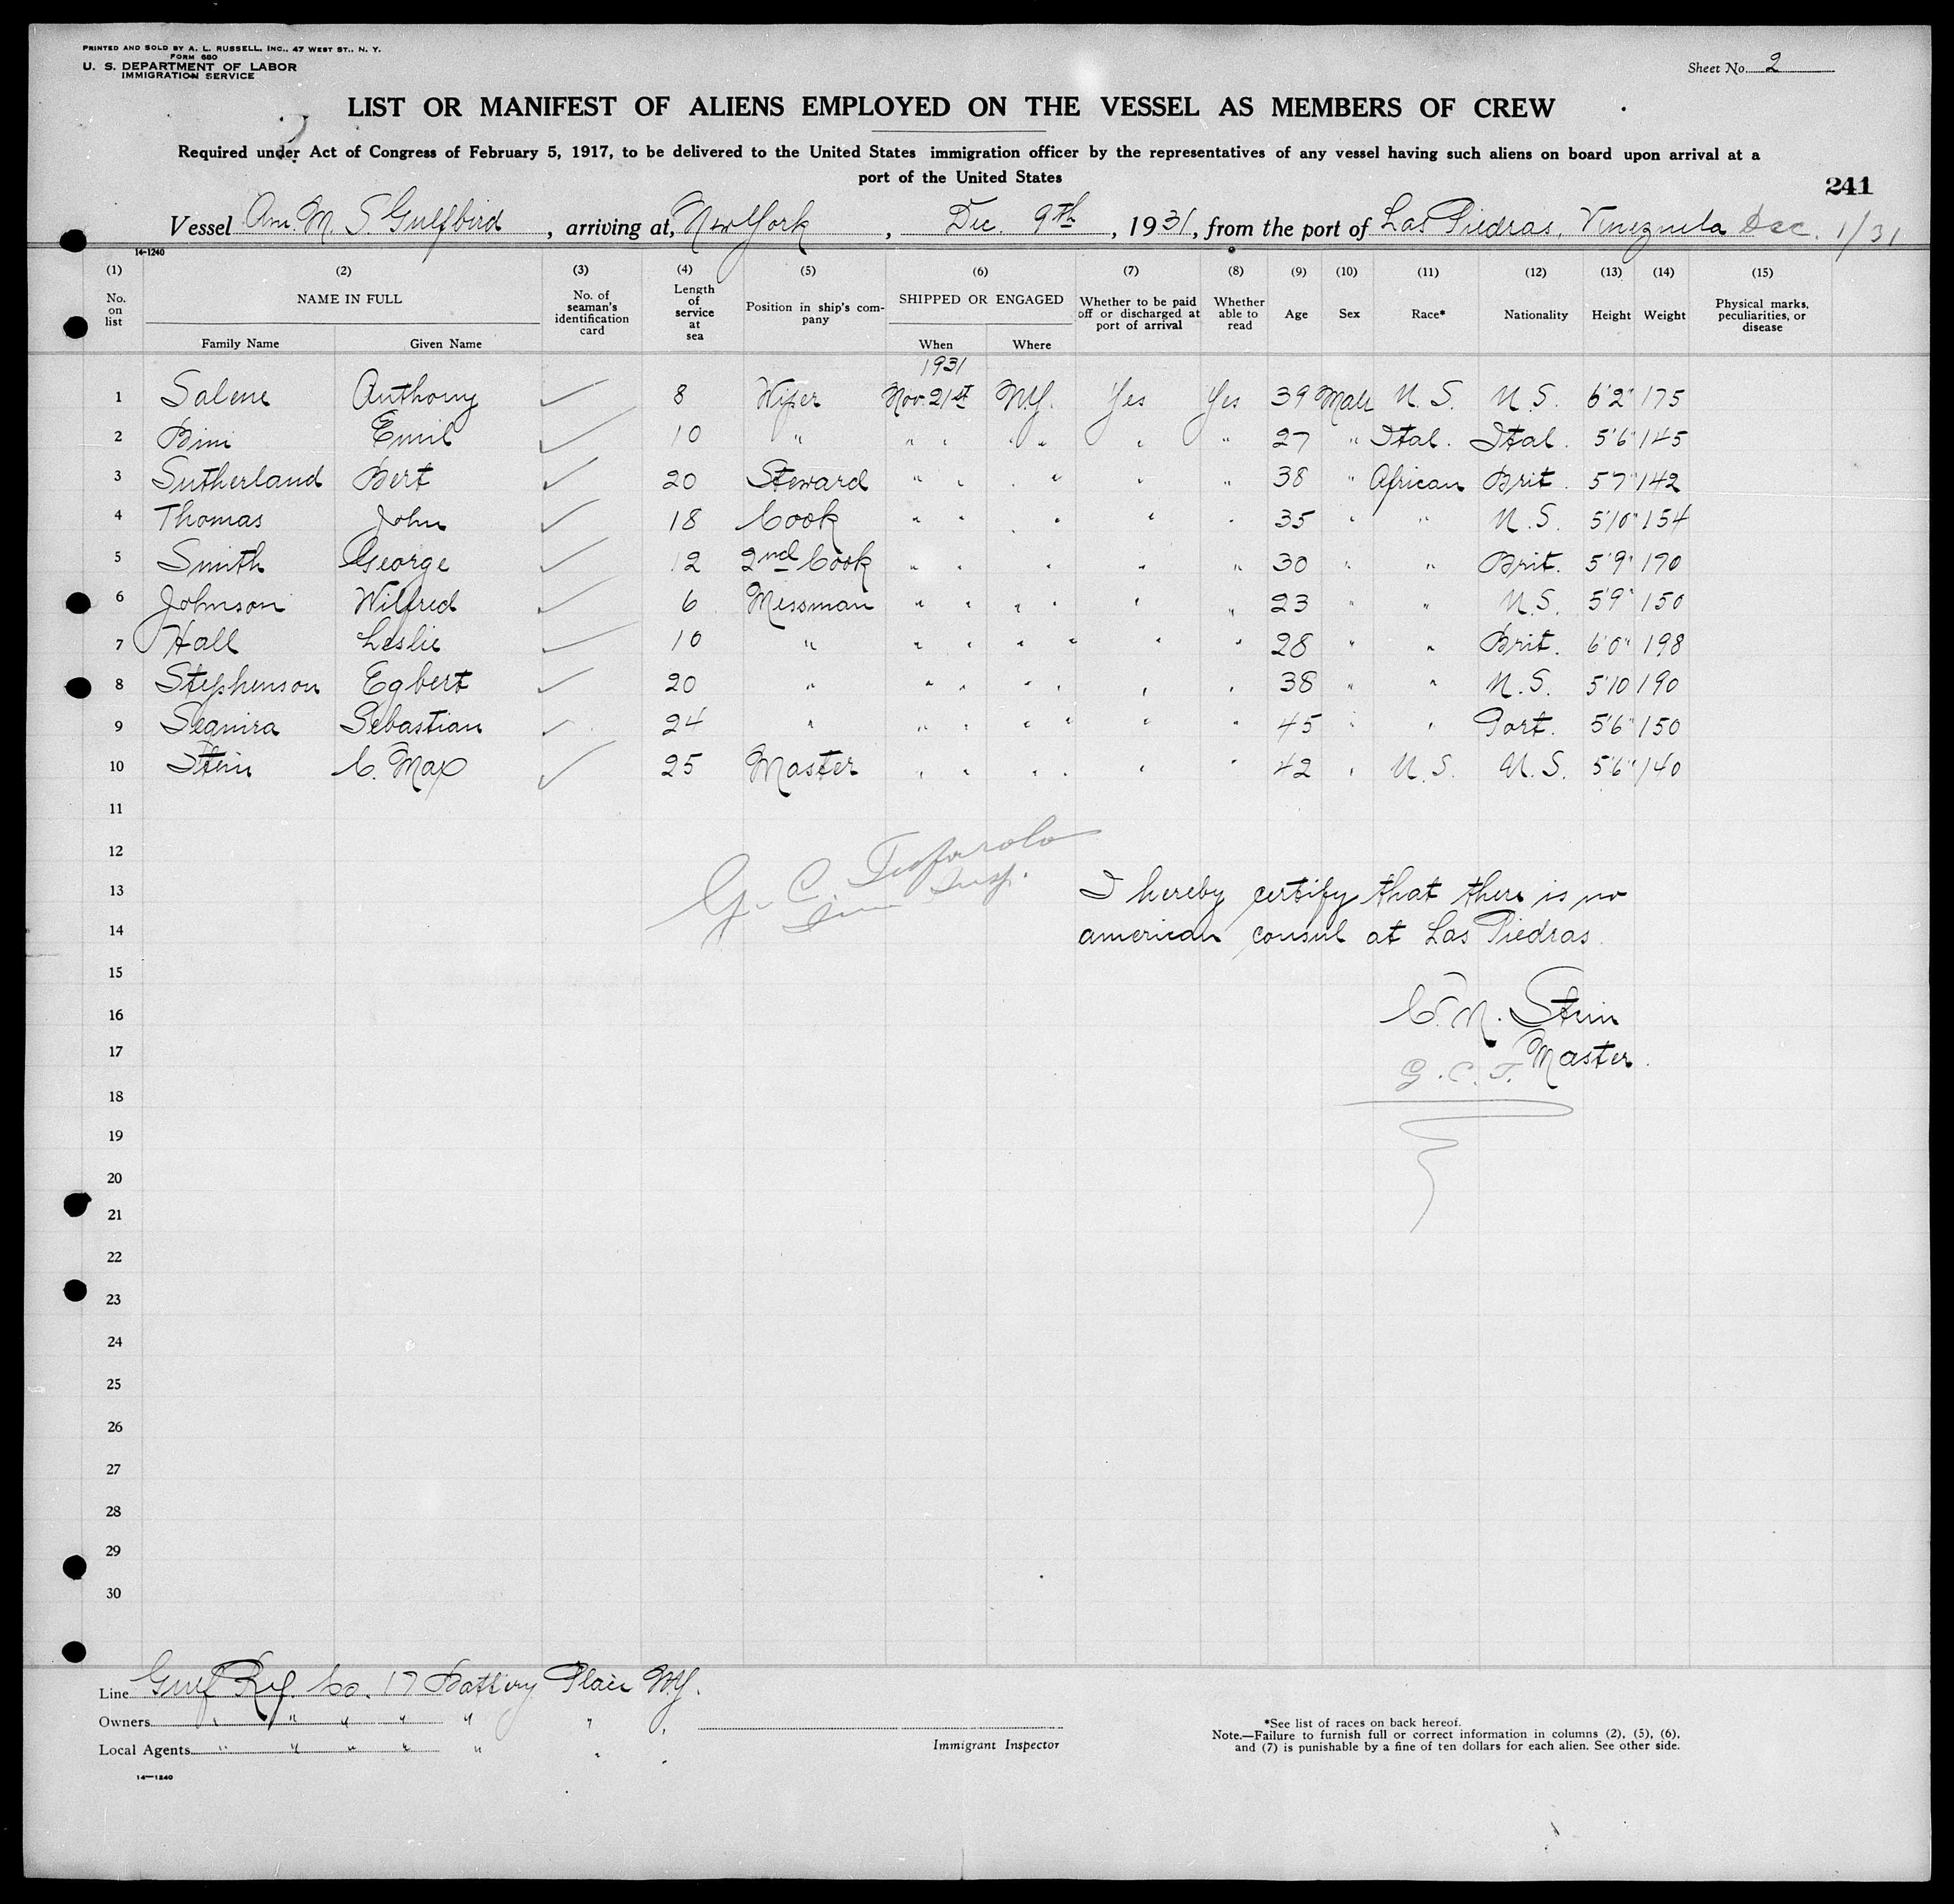 PRINTED AND SOLD BY A. L. RUSSELL, INC., 47 WEST ST., N. Y.
FORM 680
U. S. DEPARTMENT OF LABOR
IMMIGRATION SERVICE
Sheet No. 2
LIST OR MANIFEST OF ALIENS EMPLOYED ON THE VESSEL AS MEMBERS OF CREW
Required under Act of Congress of February 5, 1917, to be delivered to the United States immigration officer by the representatives of any vessel having such aliens on board upon arrival at a
port of the United States
241
Vessel Am. M. S. Gulfbird, arriving at New York, Dec. 9th, 1931, from the port of Las Piedras, Venezuela Dec. 1/31
14-1240
(1) (2) (3) (4) (5) (6) (7) (8) (9) (10) (11) (12) (13) (14) (15)
No. on list NAME IN FULL Family Name Given Name No. of seaman's identification card Length of service at sea Position in ship's company SHIPPED OR ENGAGED When Where Whether to be paid off or discharged at port of arrival Whether able to read Age Sex Race* Nationality Height Weight Physical marks, peculiarities, or disease
1931
1 Salene Anthony ✓ 8 Wiper Nov 21st N.Y. Yes Yes 39 Male U. S. U. S. 6'2" 175
2 Bini Emil ✓ 10 " " " " " " " 27 " Ital. Ital. 5'6" 145
3 Sutherland Bert ✓ 20 Steward " " " " " " 38 " African Brit. 5'7" 142
4 Thomas John ✓ 18 Cook " " " " " 35 " " U. S. 5'10" 154
5 Smith George ✓ 12 2nd Cook " " " " " 30 " " Brit. 5'9" 170
6 Johnson Wilfred ✓ 6 Messman " " " " " " 23 " " U. S. 5'9" 150
7 Hall Leslie ✓ 10 " " " " " " " 28 " " Brit. 6'0" 198
8 Stephenson Egbert ✓ 20 " " " " " " " 38 " " U. S. 5'10 190
9 Sequira Sebastian ✓ 24 " " " " " " " 45 " " Port. 5'6" 150
10 Stein C. Max ✓ 25 Master " " " " " " 42 " U. S. U. S. 5'6" 140
11
12
G. C.
Imm Insp.
13 I hereby certify that there is no
14 american consul at Las Piedras.
15
16 C. M. Stein
17 Master.
G. C. T.
18
19
20
21
22
23
24
25
26
27
28
29
30
Line Gulf Ref. Co. 17 Battery Place N.Y.
Owners " " " " " " "
Local Agents " " " " " " "
Immigrant Inspector
*See list of races on back hereof.
Note.—Failure to furnish full or correct information in columns (2), (5), (6),
and (7) is punishable by a fine of ten dollars for each alien. See other side.
14—1240